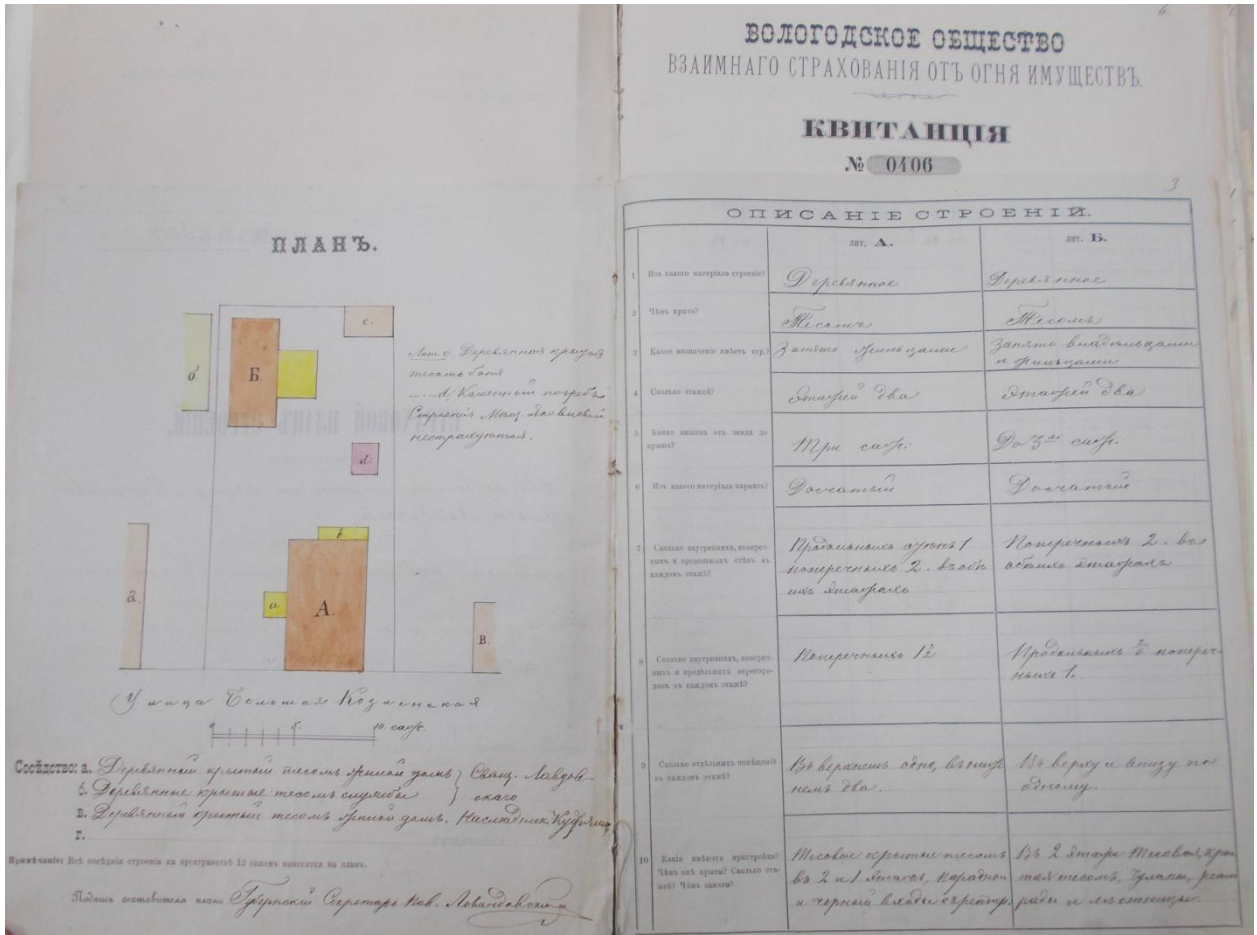 ПЛАНЪ.
с.
б.
Б.
d.
b
а
А.
а.
В.
Лит. с. Деревянная крытая
тесомъ баня
d. Каменный погребъ
Строенія
нестрахуются.
Улица Большая Козленская
0 5. 10. саж.
Сосѣдство: а. Деревянный крытый тесомъ жилой домъ } Свящ. Лавдов-
б. Деревянные крытые тесомъ службы } скаго
в. Деревянный крытый тесомъ жилой домъ.
г.
Примѣчаніе: Всѣ сосѣднія строенія на пространствѣ 12 саженъ наносятся на планъ.
Подпись составителя плана Губернскій Секретарь
6.
ВОЛОГОДСКОЕ ОБЩЕСТВО
ВЗАИМНАГО СТРАХОВАНІЯ ОТЪ ОГНЯ ИМУЩЕСТВЪ.
КВИТАНЦІЯ
№ 0406
3
ОПИСАНІЕ СТРОЕНІЙ.
лит. А. лит. Б.
1 Изъ какого матеріала строеніе? Деревянное Деревянное
2 Чѣмъ крыто? Тесомъ Тесомъ
3 Какое назначеніе имѣетъ стр.? Занято жильцами Занято владѣльцами
и жильцами
4 Сколько этажей? Этажей два Этажей два
5 Какова вышина отъ земли до
крыши? Три саж. До 3-хъ саж.
6 Изъ какого матеріала карнизъ? Досчатый Досчатый
7 Сколько внутреннихъ, попереч-
ныхъ и продольныхъ стѣнъ въ
каждомъ этажѣ?
Продольныхъ 1
поперечныхъ 2. въ обо-
ихъ этажахъ
Поперечныхъ 2. въ
обоихъ этажахъ
8 Сколько внутреннихъ, попереч-
ныхъ и продольныхъ перегоро-
докъ въ каждомъ этажѣ?
Поперечныхъ
Продольныхъ попереч-
ныхъ 1.
9 Сколько отдѣльныхъ помѣщеній
въ каждомъ этажѣ?
Въ верхнемъ одно, въ ниж-
немъ два.
Въ верху и внизу по
одному.
10 Какія имѣются пристройки?
Чѣмъ онѣ крыты? Сколько эта-
жей? Чѣмъ заняты?
Тесовые крытые тесомъ
въ 2 и 1 этажа, парадной
и черный входы
Въ 2 этажа тесовая, кры-
тая тесомъ, чуланы,
и лѣстницы